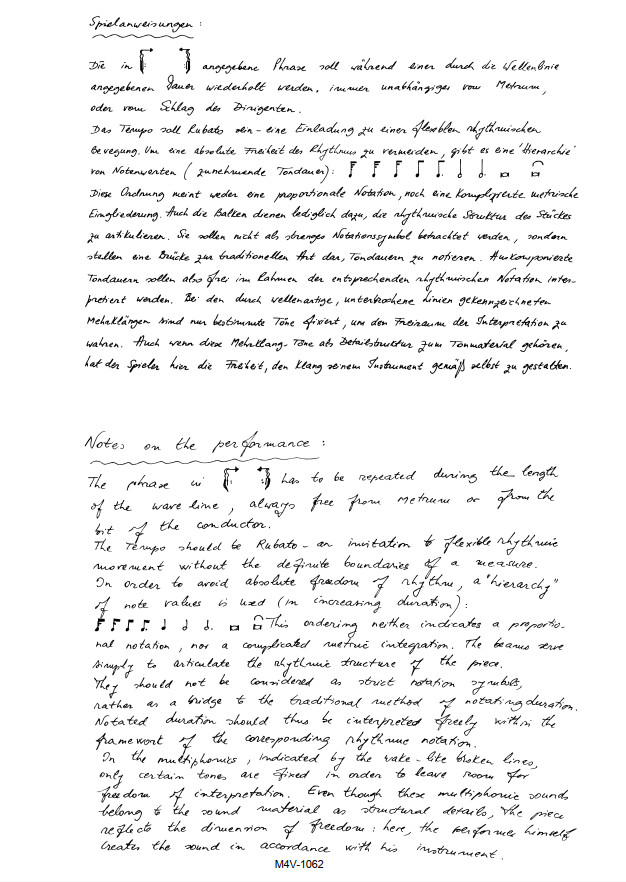 Spielanweisungen:
Die in angegebene Phrase soll während einer durch die Wellenlinie
angegebenen Dauer wiederholt werden, immer unabhängiger vom Metrum,
oder vom Schlag des Dirigenten.
Das Tempo soll Rubato sein - eine Einladung zu einer flexiblen rhythmischen
Bewegung. Um eine absolute Freiheit des Rhythmus zu vermeiden, gibt es eine 'Hierarchie'
von Notenwerten (zunehmende Tondauer):
Diese Ordnung meint weder eine proportionale Notation, noch eine komplizierte metrische
Eingliederung. Auch die Balken dienen lediglich dazu, die rhythmische Struktur des Stückes
zu artikulieren. Sie sollen nicht als strenges Notationssymbol betrachtet werden, sondern
stellen eine Brücke zur traditionellen Art dar, Tondauern zu notieren. Auskomponierte
Tondauern sollen also frei im Rahmen der entsprechenden rhythmischen Notation inter-
pretiert werden. Bei den durch wellenartige, unterbrochene Linien gekennzeichneten
Mehrklängen sind nur bestimmte Töne fixiert, um den Freiraum der Interpretation zu
wahren. Auch wenn diese Mehrklang-Töne als Detailstruktur zum Tonmaterial gehören,
hat der Spieler hier die Freiheit, den Klang seinem Instrument gemäß selbst zu gestalten.
Notes on the performance:
The phrase in has to be repeated during the length
of the wave line, always free from Metrum or from the
bit of the conductor.
The Tempo should be Rubato - an invitation to flexible rhythmic
movement without the definite boundaries of a measure.
In order to avoid absolute freedom of rhythm, a "hierarchy"
of note values is used (in increasing duration):
This ordering neither indicates a proportio-
nal notation, nor a complicated metric integration. The beams serve
simply to articulate the rhythmic structure of the piece.
They should not be considered as strict notation symbols,
rather as a bridge to the traditional method of notating duration.
Notated duration should thus be interpreted freely within the
framework of the corresponding rhythmic notation.
In the multiphonics, indicated by the wake-like broken lines,
only certain tones are fixed in order to leave room for
freedom of interpretation. Even though these multiphonic sounds
belong to the sound material as structural details, the piece
reflects the dimension of freedom: here, the performer himself
creates the sound in accordance with his instrument.
M4V-1062